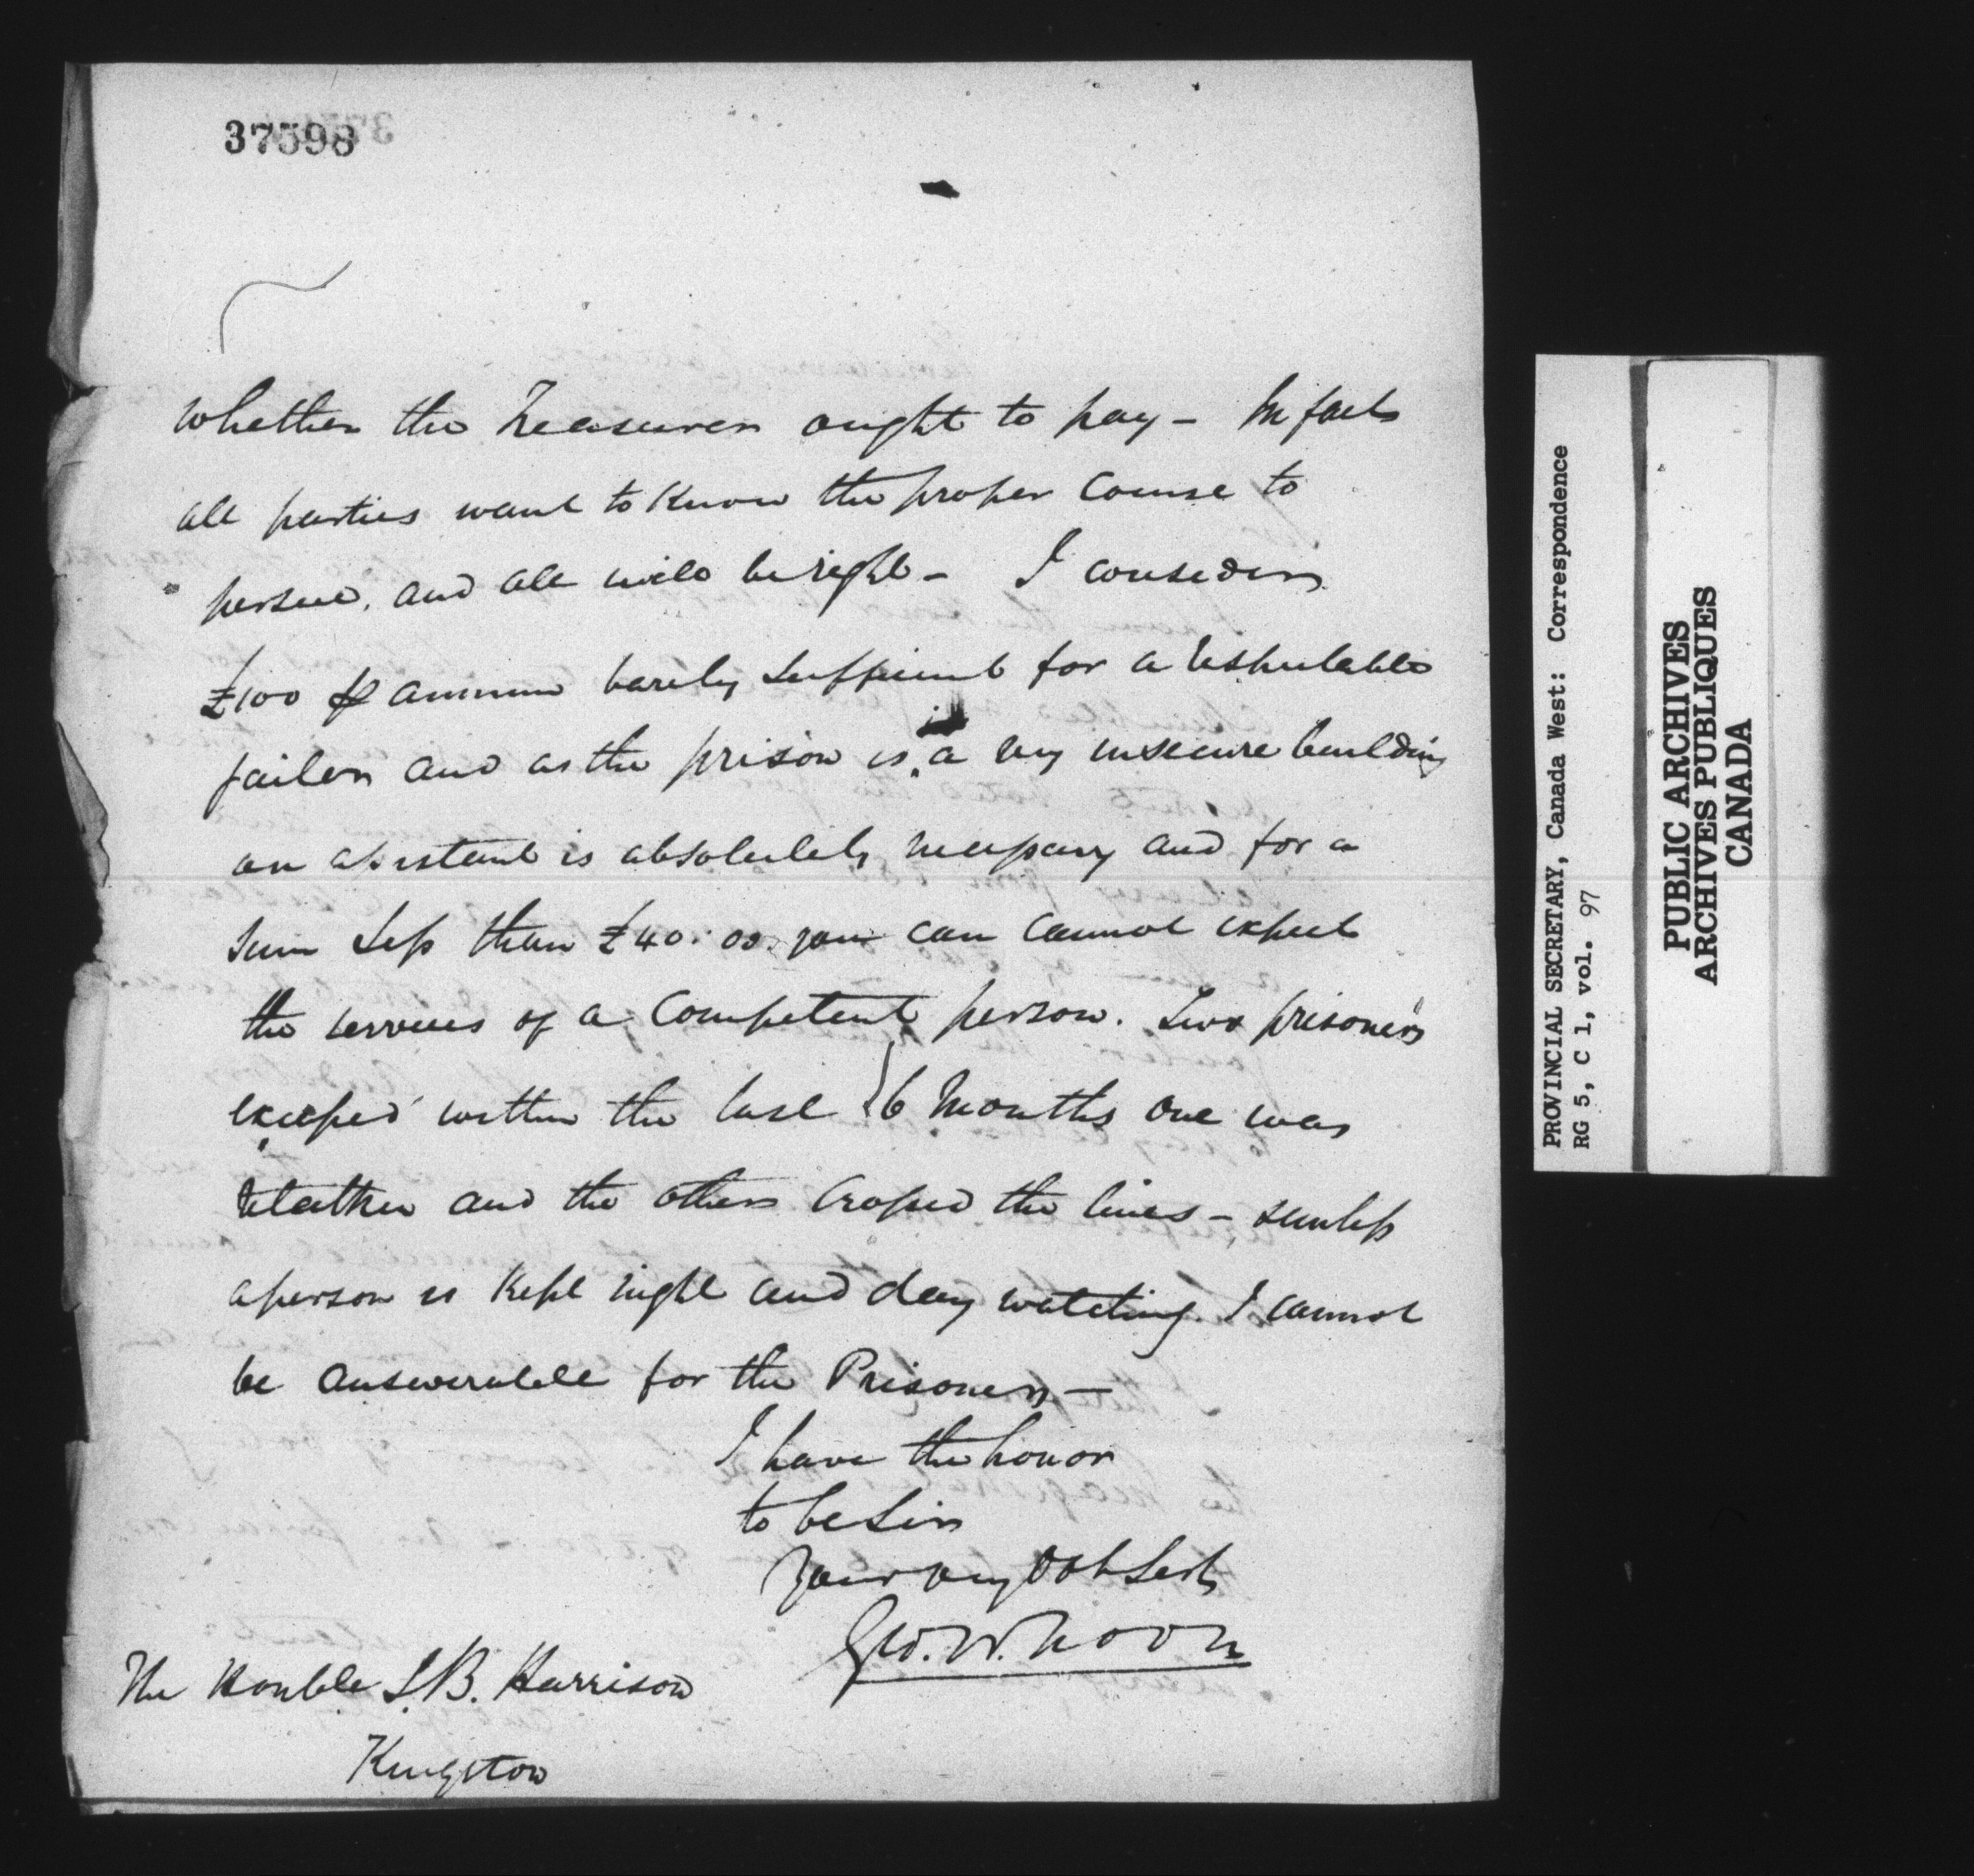 37598
whether the Treasurer ought to pay - In fact
all parties want to know the proper course to
persue, and all will be right - I consider
£100 ⅌ annum barely sufficient for a respectable
jailer and as the prison is a very insecure building
an assistant is absolutely necessary and for a
sum less than £40:00 you can cannot expect
the services of a competent person. Two prisoners
escaped within the last 6 months one was
retaken and the other crossed the lines - unless
a person is kept night and day watching I cannot
be answerable for the Prisoners -
I have the honor
to be Sir
Your very Obt Servt
Geo. W.
The Honble S B. Harrison
Kingston
PROVINCIAL SECRETARY, Canada West: Correspondence
RG 5, C 1, vol. 97
PUBLIC ARCHIVES
ARCHIVES PUBLIQUES
CANADA